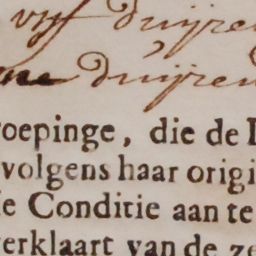 vijf duijzen
duijzen
roepinge, die de
volgens haar origi
le Conditie aan te
verklaart van de ze